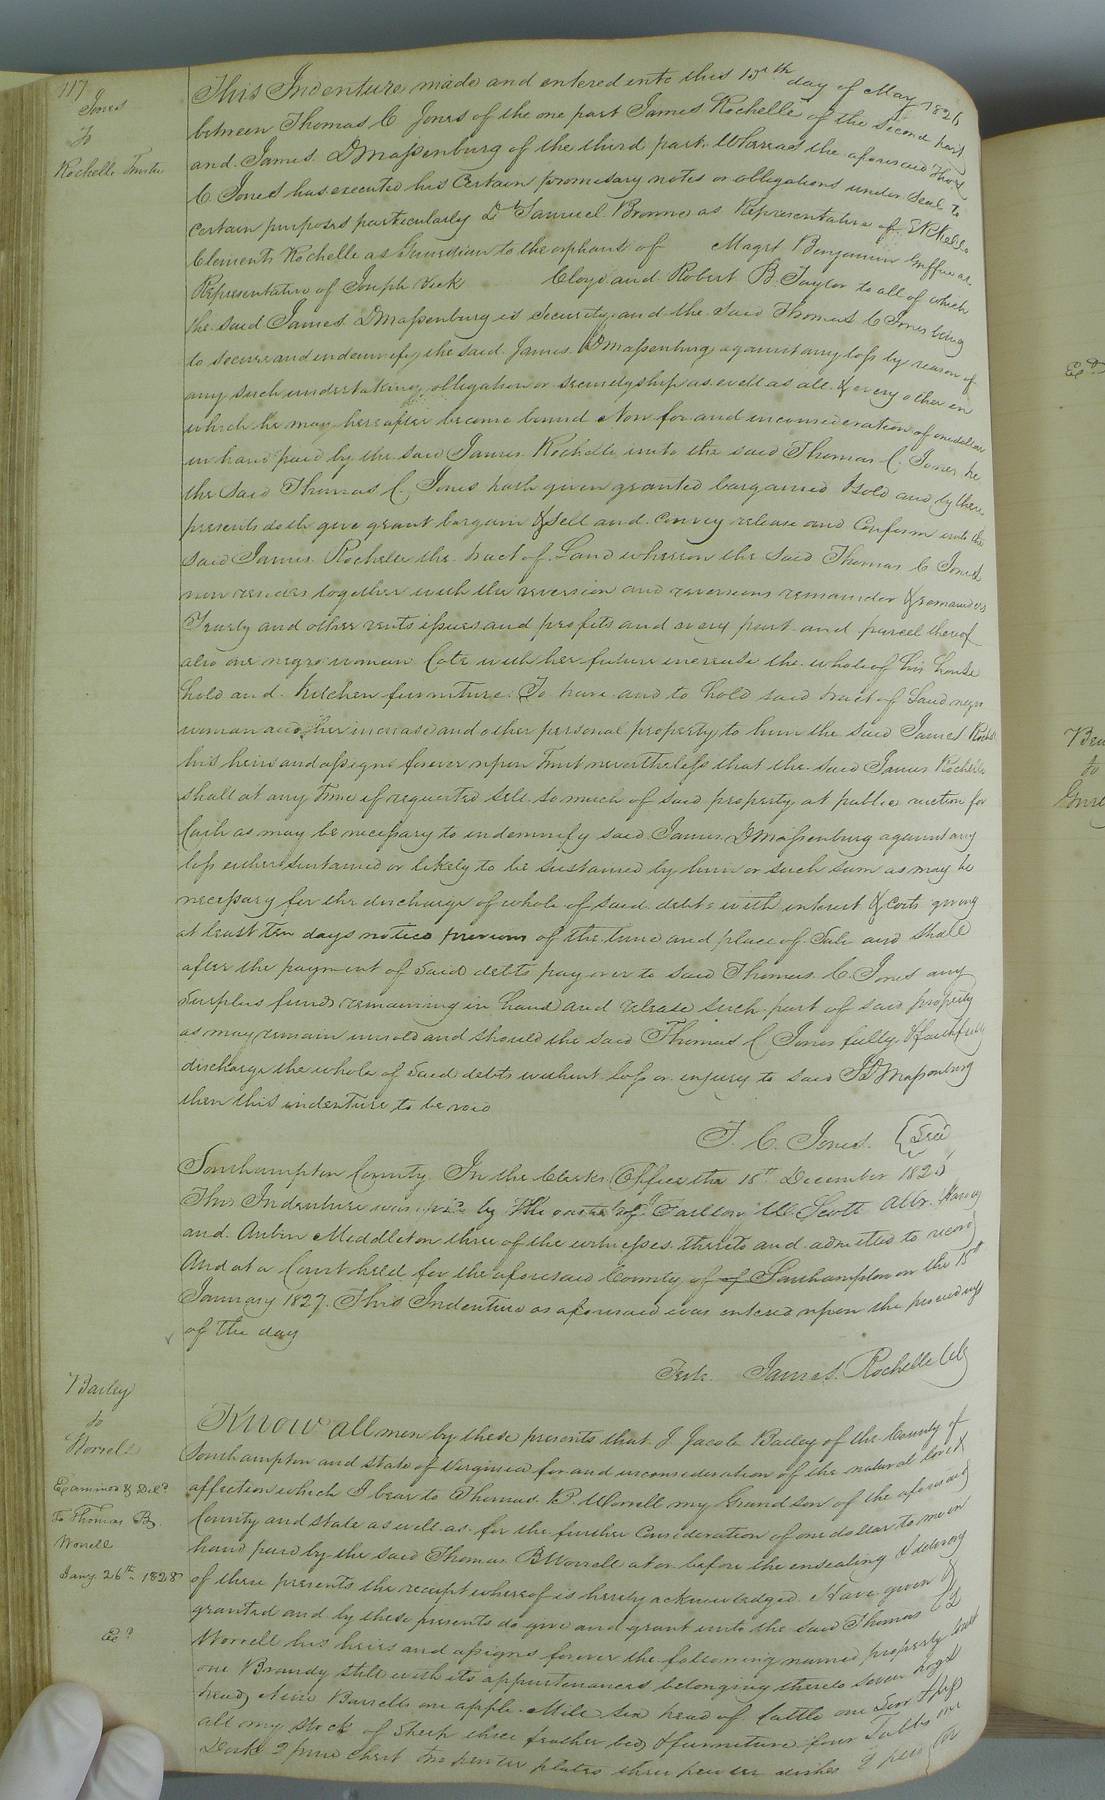 117
Jones
To
Rochelle Trustee
This Indenture made and entered into this 15th day of May 1826
between Thomas C Jones of the one part James Rochelle of the Second part
and James D Massenburg of the third part. Whereas the aforesaid Thos
C. Jones has executed his Certain promissary notes or obligations under Seal to
certain purposes particularly Dr Samuel Browne as Representative of
Clements Rochelle as Guardian to the orphans of Magst Benjamin Griffin as
Representative of Joseph Vick Cloyd and Robert B. Taylor to all of which
the said James D Massenburg is Security and the said Thomas C Jones being
to secure and indemnify the said James D Massenburg against any loss by reason of
any such undertaking obligation or securityship as well as all & every other in
which he may hereafter become bound Now for and inconsideration of one dollar
in hand paid by the said James Rochelle unto the said Thomas C. Jones he
the said Thomas C. Jones hath given granted bargained & sold and by these
presents doth give grant bargain & sell and convey release and Confirm unto the
said James Rochelle the tract of Land whereon the said Thomas C Jones
now resides together with the reversion and reversions remainder & remainders
Yearly and other rents issues and profits and every part and parcel thereof
also one negro woman Cate with her future increase the whole of his house
hold and Kitchen furniture. To have and to hold said tract of Land negro
woman and her increase and other personal property to him the said James Rochelle
his heirs and assigns forever upon Trust nevertheless that the said James Rochelle
shall at any Time if requested sell so much of said property at public auction for
Cash as may be necessary to indemnify said James D Massenburg against any
loss either sustained or likely to be sustained by him or such sum as may be
necessary for the discharge of whole of said debts with interest & costs giving
at least Ten days notice previous of the time and place of Sale and shall
after the payment of said debts pay over to said Thomas C. Jones any
Surplus funds remaining in hand and release such part of said property
as may remain unsold and should the said Thomas C Jones fully & faithfully
discharge the whole of Said debts without loss or injury to said JD Massenburg
then this indenture to be void
T. C. Jones. Seal
Southampton County In the Clerks Office the 15th December 1826
This Indenture was by the oaths of W. Scott
and Middleton three of the witnesses thereto and admitted to record
And at a Court held for the aforesaid County of of Southampton on the 15th
January 1827. This Indenture as aforesaid was entered upon the proceedings
of the day
Teste James Rochelle Clk
Bailey
to
Worrell
Examined & Deld
To Thomas B
Worrell
Jany 26th 1828
Know all men by these presents that I Jacob Bailey of the County of
Southampton and State of Virginia for and inconsideration of the natural love &
affection which I bear to Thomas B. Worrell my Grandson of the aforesaid
County and state as well as for the further Consideration of one dollar to me in
hand paid by the said Thomas B Worrell at or before the ensealing & delivery
of these presents the receipt whereof is hereby acknowledged. Have given &
granted and by these presents do give and grant unto the said Thomas B
Worrell his heirs and assigns forever the following named property
one Brandy still with its appurtenances belonging thereto seven hogs
head Nine Barrells one apple Mill six head of Cattle one Sow
all my stock of Sheep three feather beds & furniture four Tables one
Desk 2 pine chest pewter plates three pewter dishes 2